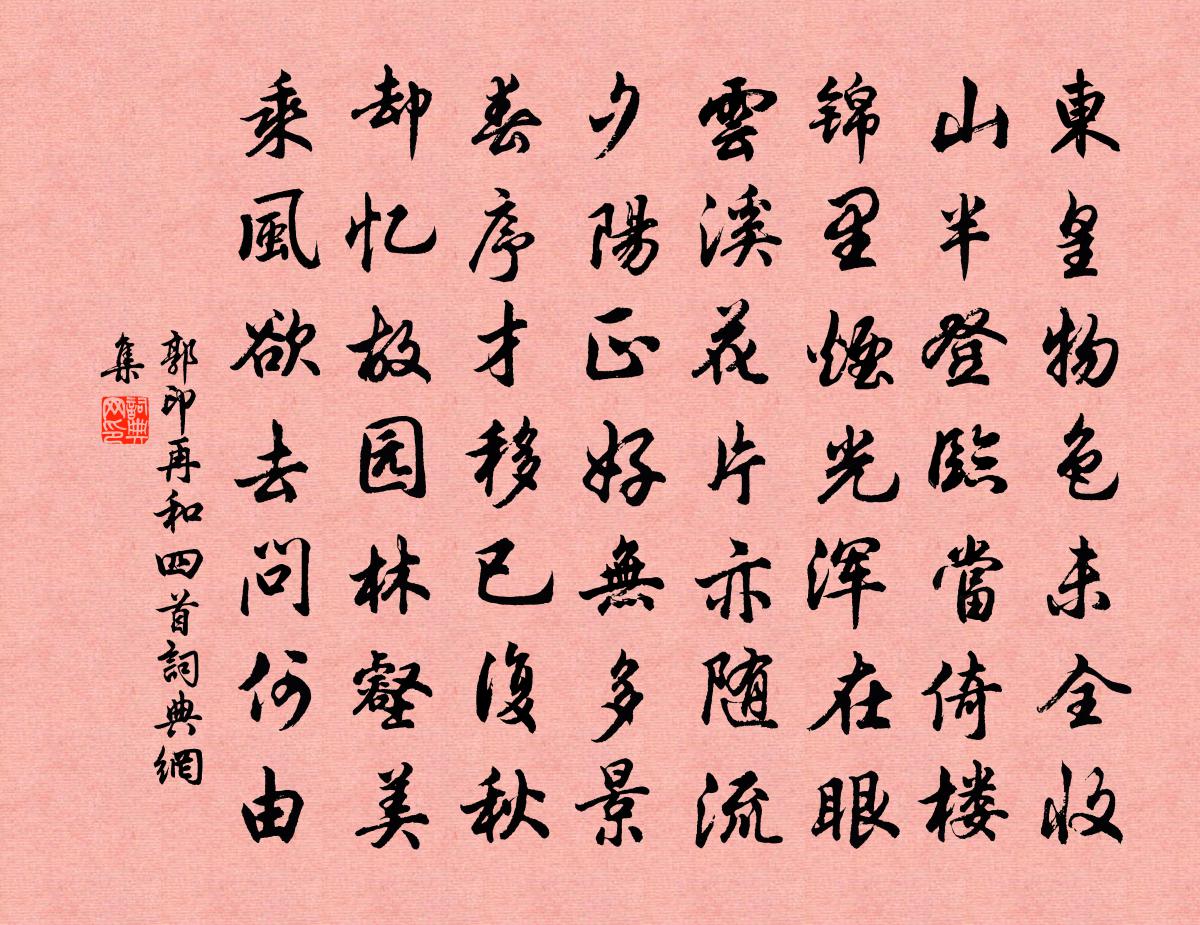 東皇物色未全收
山半登臨當倚楼
锦里煙光浑在眼
雲溪花片亦随流
夕陽正好無多景
春序才移已復秋
却忆故园林壑美
乘風欲去問何由
郭印再和四首詞典網
集
詞典
网印